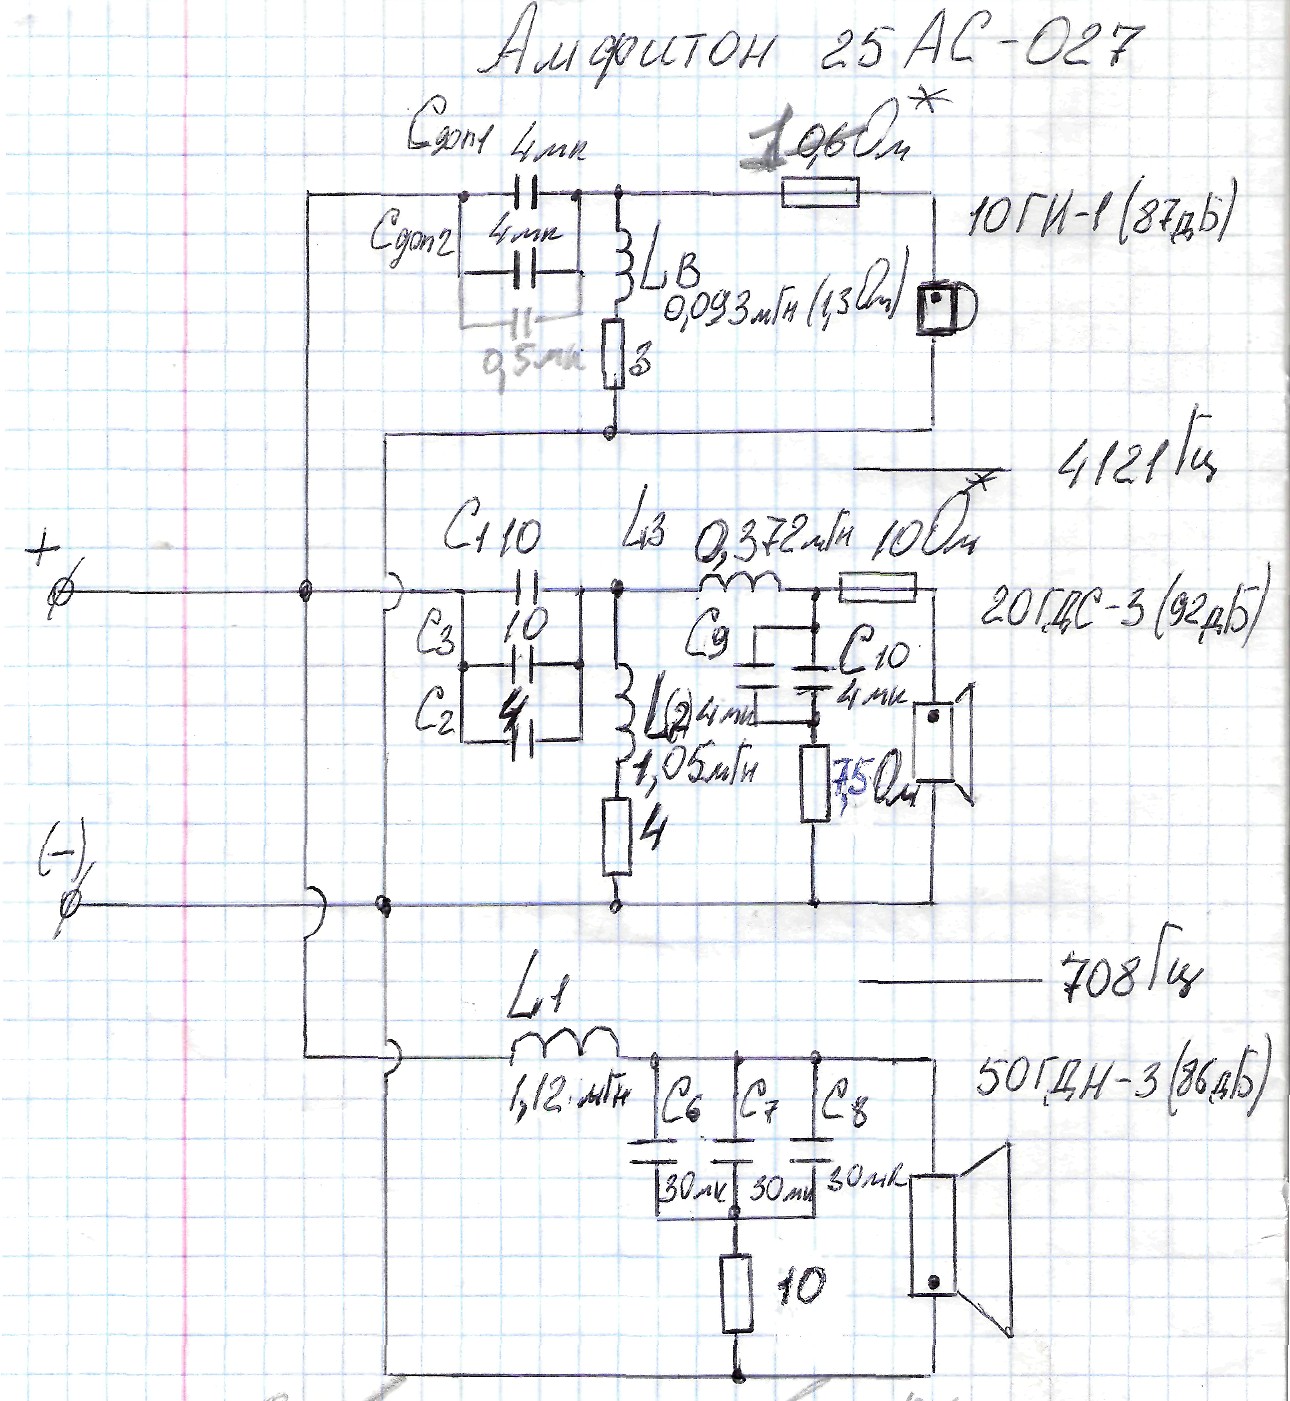 Амфитон 25АС-027
Cдоп1 4мк
1 0,6Ом*
Cдоп2 4мк
10ГИ-1 (87дБ)
LВ
0,093мГн (1,3Ом)
0,5мк
3
4121Гц
+
C1 10
L3
0,372мГн
10Ом*
20ГДС-3 (92дБ)
C3 10
C9
C10
C2 4
L(2) 4мк
4мк
1,05мГн
7,5 Ом
4
(-)
708Гц
L1
1,12 мГн
50ГДН-3 (86дБ)
C6 C7 C8
30мк 30мк 30мк
10